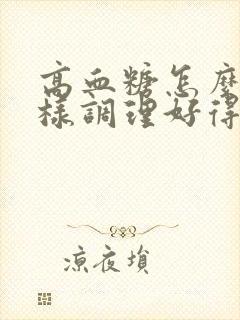 高血糖怎麼
樣調理好得
涼夜塤